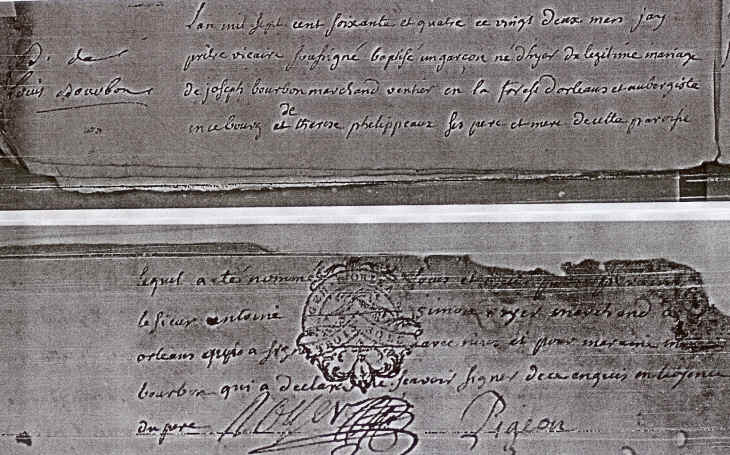 B. de
Louis Bourbon
Lan mil sept cent soixante et quatre ce vingt deux mars jay
prêtre vicaire soussigné baptisé un garçon né d'hyer de legitime mariage
de joseph bourbon marchand ventier en la forest dorleans et aubergiste
en ce bourg et de therese philippeaux ses pere et mere de cette paroisse
lequel a été nommé Louis
le sieur antoine simon marchand a
orleans qui a signé avec nous et pour maraine
bourbon qui a declaré ne scavoir signer de ce enquis en la presence
du pere
Pigeon